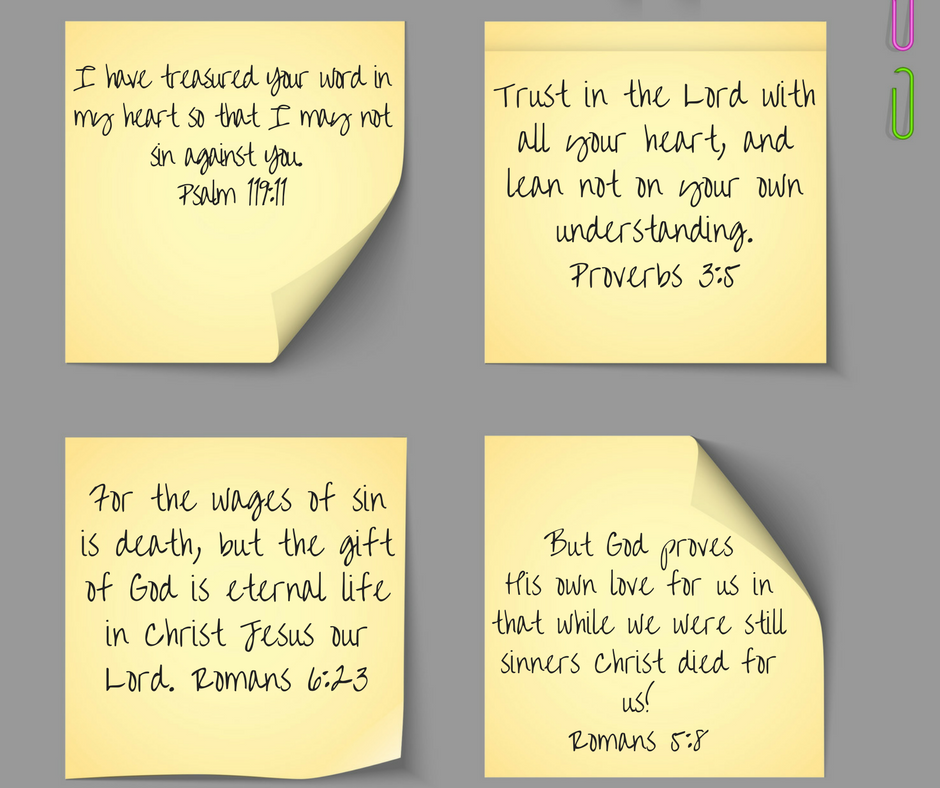 I have treasured your word in
my heart so that I may not
sin against you.
Psalm 119:11
Trust in the Lord with
all your heart, and
lean not on your own
understanding.
Proverbs 3:5
For the wages of sin
is death, but the gift
of God is eternal life
in Christ Jesus our
Lord. Romans 6:23
But God proves
His own love for us in
that while we were still
sinners Christ died for
us!
Romans 5:8